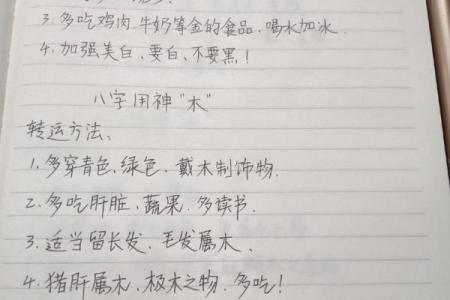 3.多吃鸡肉.牛奶等金的食品、喝水加冰.
4.加强美白、要白、不要黑!
八字用神“木”
转运方法、
1.多穿青色、绿色、戴木制饰物.
2.多吃肝脏、蔬果.多读书.
3.适当留长发、毛发属木.
4.猪肝属木、极木之物.多吃!